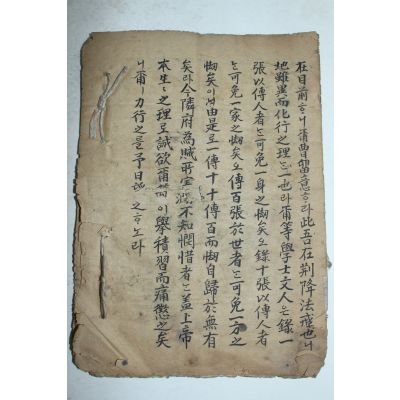 在目前ᄒᆞ니爾曹留意ᄒᆞ라此吾在荆降法壇也ㅣ니
地雖異而化行之理ᄂᆞᆫ一也ㅣ라爾等學士文人은錄一
張以傳人者ᄂᆞᆫ可免一身之
矣오錄十張以傳人者
ᄂᆞᆫ可免一家之
矣오傳百張於世者ᄂᆞᆫ可免一方之
矣
由是로一傳十十傳百而
自歸於無有
矣라今隣府為賊所
不知憫惜者ᄂᆞᆫ盖上帝
本生生之理로誠欲爾
이擧積習而痛懲之矣
니爾
力行之를予日
之ᄒᆞ노라